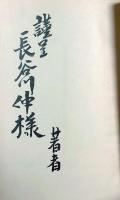 謹呈
長谷川仲様
著者